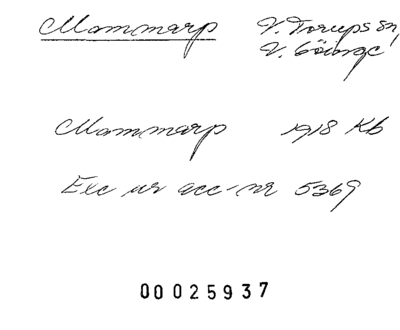 Mammarp V. Torups sn,
V. Göinge
Mammarp 1918 Kb
Exc ur acc-nr 5369
00025937